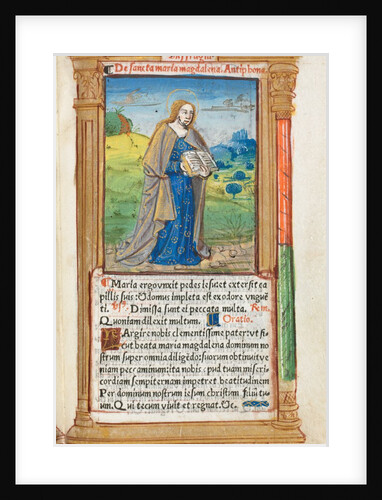 ¶ De sancta maria magdalena. Antiphona.
¶ Maria ergo vnxit pedes iesu et extersit ca
pillis suis: Et domus impleta est ex odore vnguē
ti. Dimissa sunt ei peccata multa.
Quoniam dilexit multum. Oratio.
Largire nobis clementissime pater vt sicut
beata maria magdalena dominum no
strum super omnia diligēdo: suorum obtinuit ve
niam peccaminum: ita nobis apud tuam miseri
cordiam sempiternam impetret beatitudinem
Per dominum nostrum iesum christum filiū tu
um. Qui tecum viuit et regnat. &c.